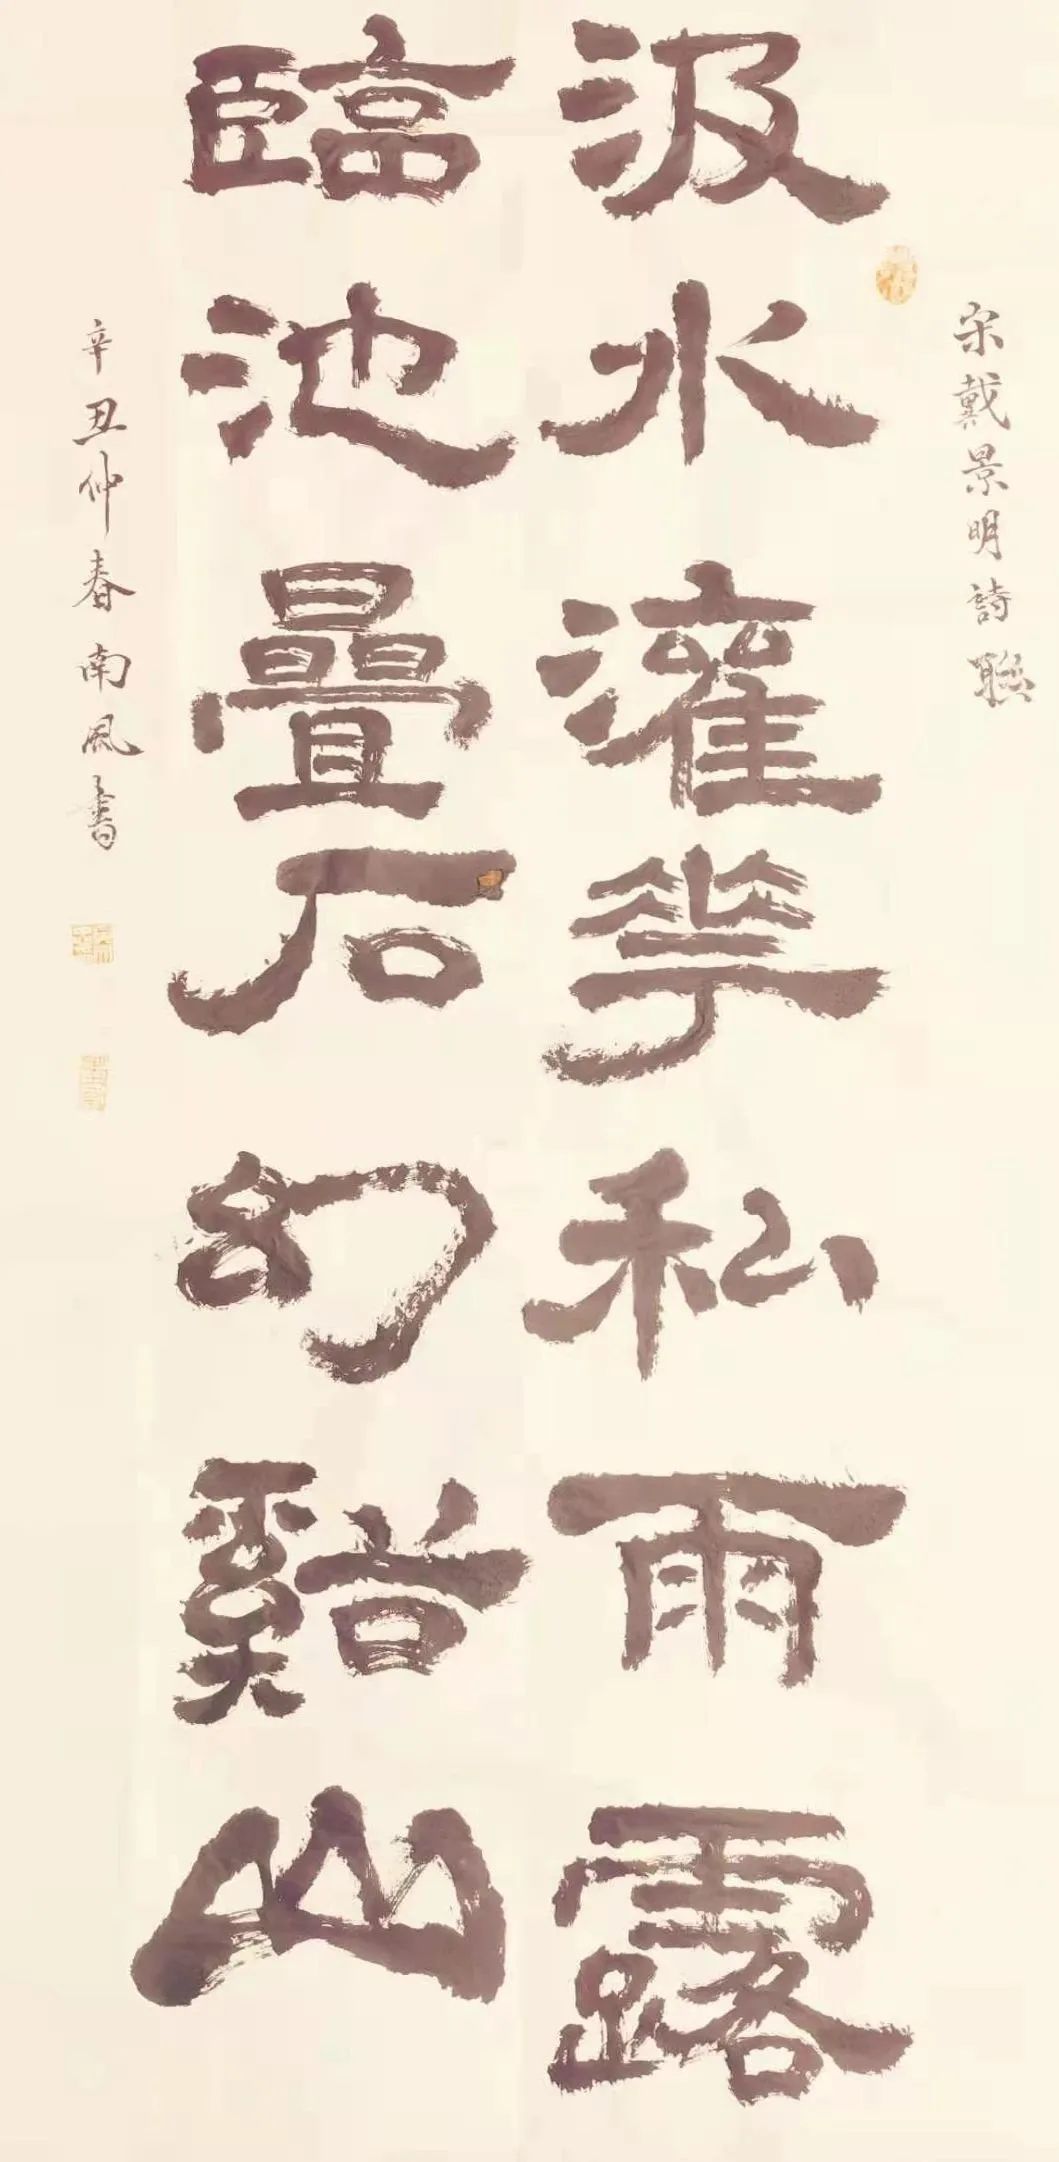 宋戴景明詩聯
汲水灌華私雨露
臨池疊石幻谿山
辛丑仲春南風書